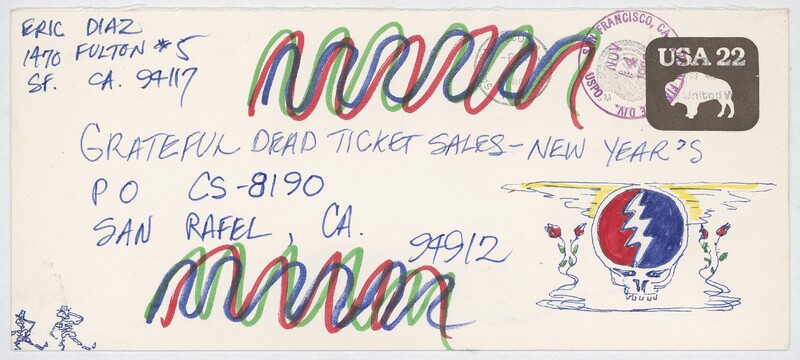 ERIC DIAZ
1470 FULTON #5
SF. CA. 94117
SAN FRANCISCO, CA
NOV
USPO
DIV.
USA 22
United
GRATEFUL DEAD TICKET SALES - NEW YEAR'S
PO CS-8190
SAN RAFEL, CA.
94912